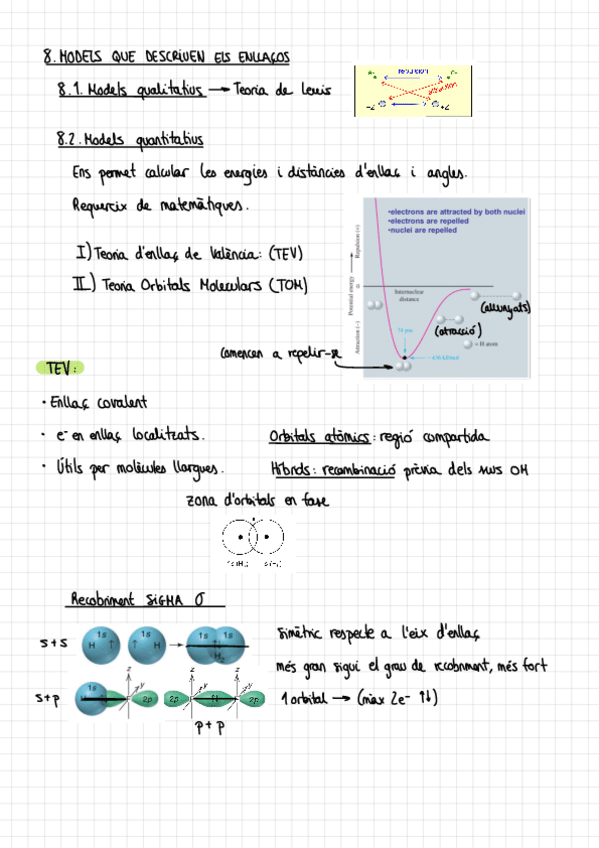 8. MODELS QUE DESCRIUEN ELS ENLLAÇOS
8.1. Models qualitatius → Teoria de Lewis
repulsion
attraction
-Z
+Z
8.2. Models quantitatius
Ens permet calcular les energies i distàncies d'enllaç i angles.
Requereix de matemàtiques.
•electrons are attracted by both nuclei
•electrons are repelled
•nuclei are repelled
I) Teoria d'enllaç de València: (TEV)
II) Teoria Orbitals Moleculars (TOM)
Potential energy
Attraction (–) Repulsion (+)
0
Internuclear
distance
(allunyats)
74 pm
(atracció)
= H atom
comencen a repelir-se
TEV:
• Enllaç covalent
• e⁻ en enllaç localitzats.
Orbitals atòmics: regió compartida
• Útils per molècules llargues.
Híbrids: recombinació prèvia dels seus OM
zona d'orbitals en fase
Recobriment SIGMA σ
s+s
1s
H ↑
1s
↑ H
1s 1s
H₂
Simètric respecte a l'eix d'enllaç
més gran sigui el grau de recobriment, més fort
s+p
1s
z
y
2p
2p
z
y
z
y
2p
1 orbital → (màx 2e⁻ ↑↓)
p+p